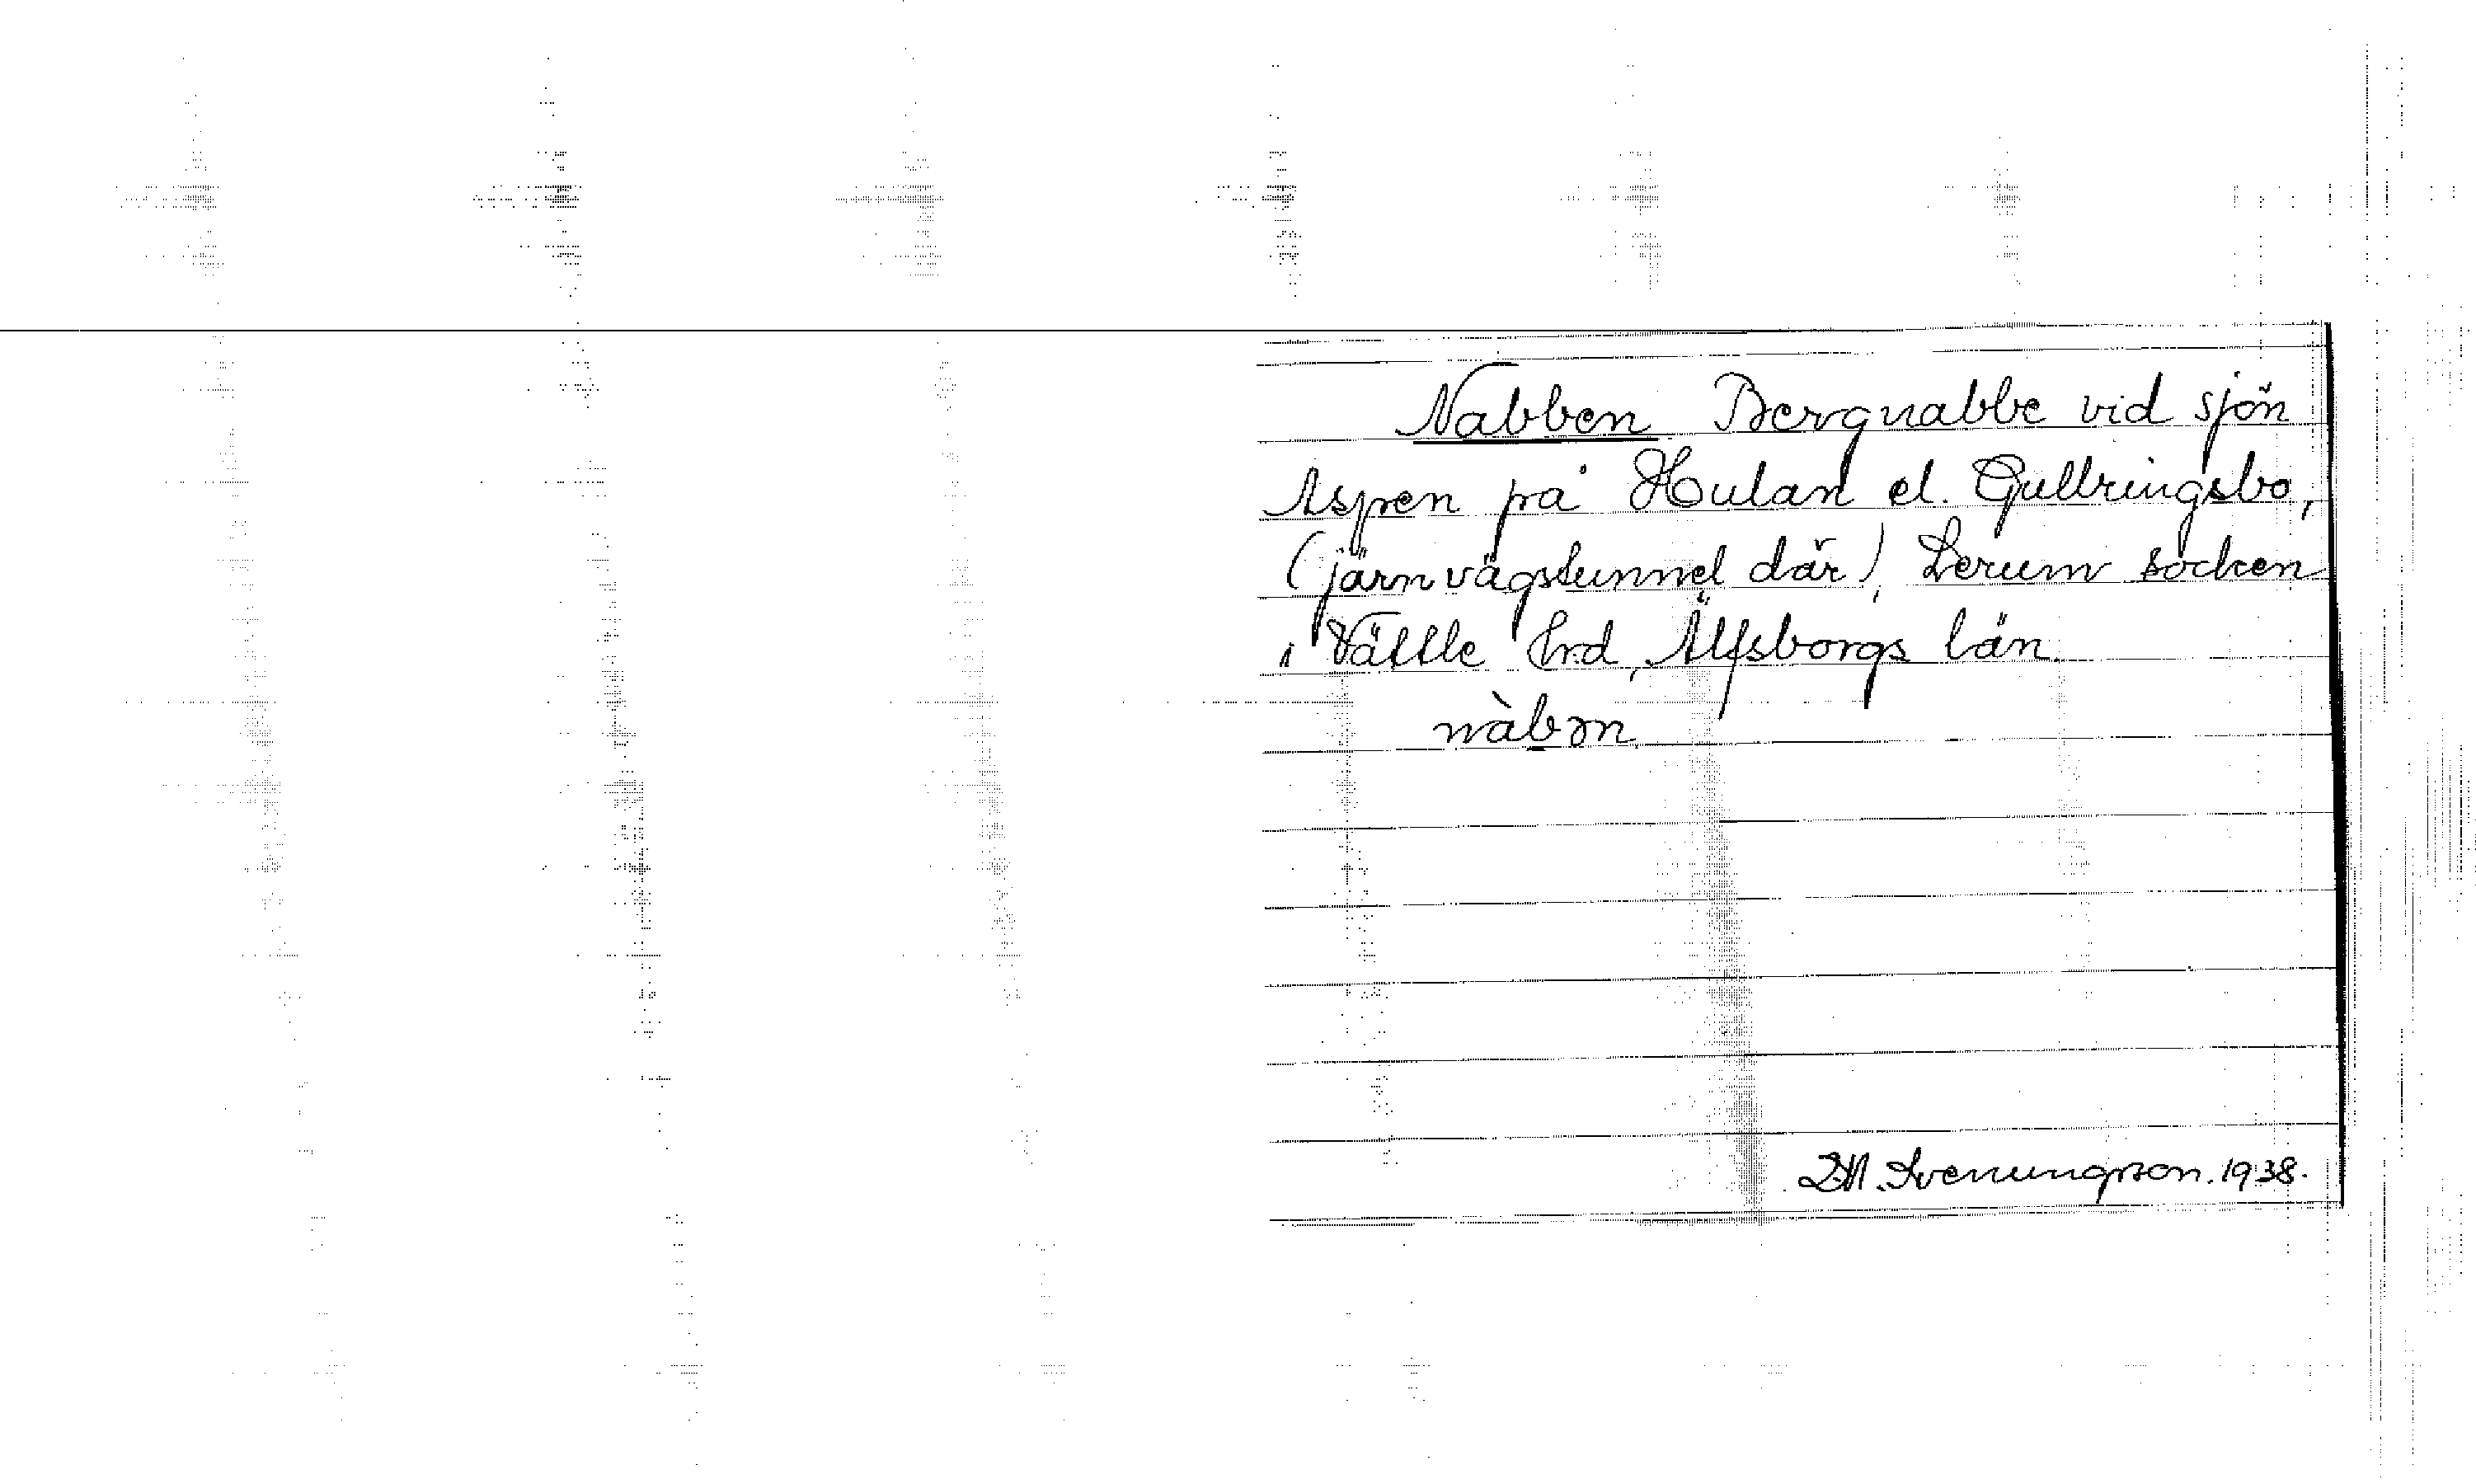 Nabben Bergnabbe vid sjön
Aspen på Hulan el. Gullringsbo,
(järnvägstunnel där), Lerum socken
i Vättle hrd, Älfsborgs län.
nàbən
D.M. Svenungsson. 1938.